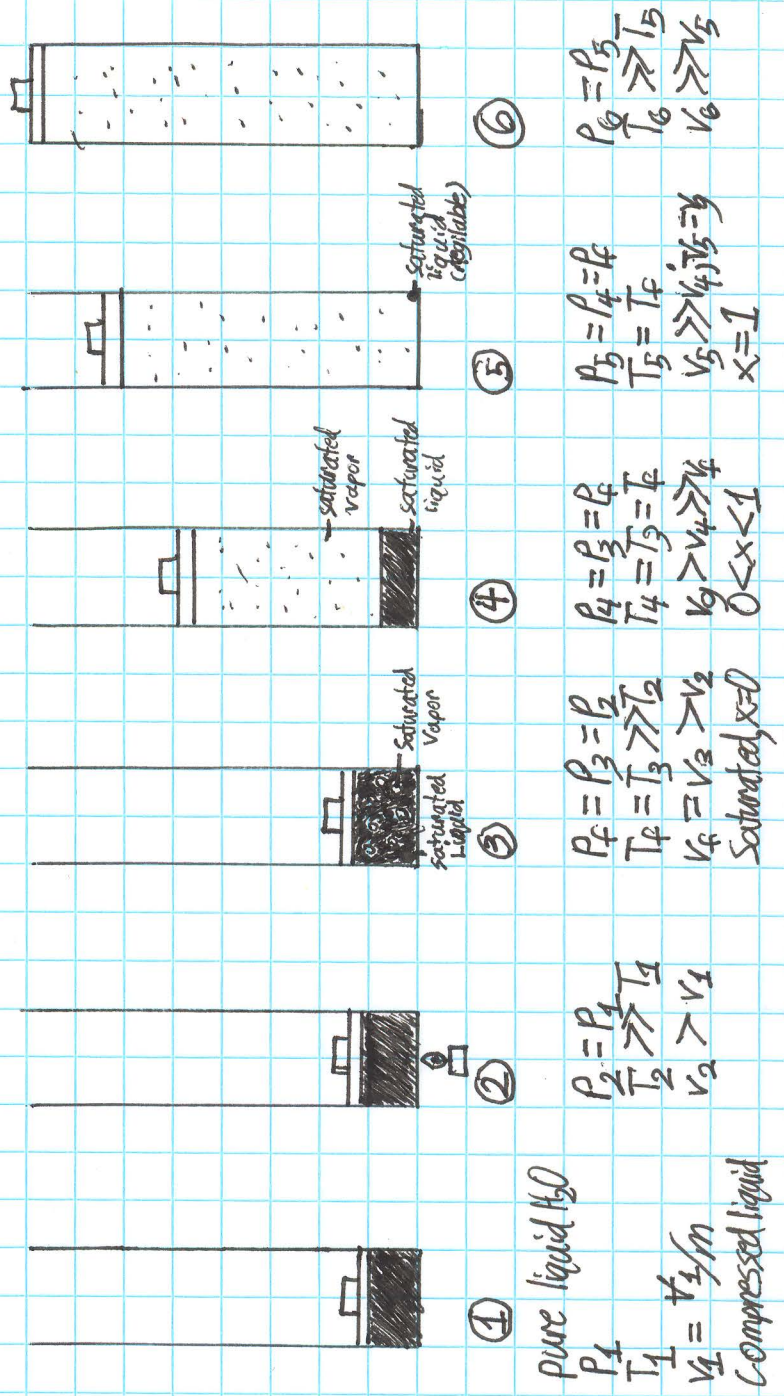 ①
pure liquid H₂O
P₁
T₁
v₁ = V₁/m
Compressed liquid
②
P₂ = P₁
T₂ ≫ T₁
v₂ > v₁
saturated
liquid
saturated
vapor
③
Pf = P₃ = P₂
Tf = T₃ ≫ T₂
vf = v₃ > v₂
Saturated, x=0
saturated
vapor
saturated
liquid
④
P₄ = P₃ = Pf
T₄ = T₃ = Tf
vg > v₄ ≫ vf
0 < x < 1
saturated
liquid
(negilable)
⑤
P₅ = P₄ = Pf
T₅ = Tf
v₅ ≫ v₄; v₅ = vg
x = 1
⑥
P₆ = P₅
T₆ ≫ T₅
v₆ ≫ v₅